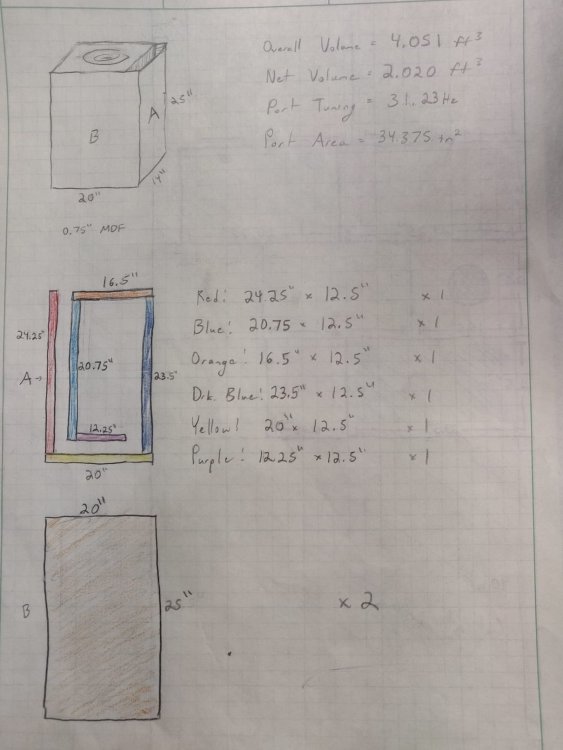 Overall Volume = 4.051 ft³
Net Volume = 2.020 ft³
Port Tuning = 31.23Hz
Port Area = 34.375 in²
A
25"
B
14"
20"
0.75" MDF
16.5"
24.25"
20.75"
A→
23.5"
12.25"
20"
Red: 24.25" × 12.5" × 1
Blue: 20.75 × 12.5" × 1
Orange: 16.5" × 12.5" × 1
Drk. Blue: 23.5" × 12.5" × 1
Yellow: 20" × 12.5" × 1
Purple: 12.25" × 12.5" × 1
20"
B
25"
× 2